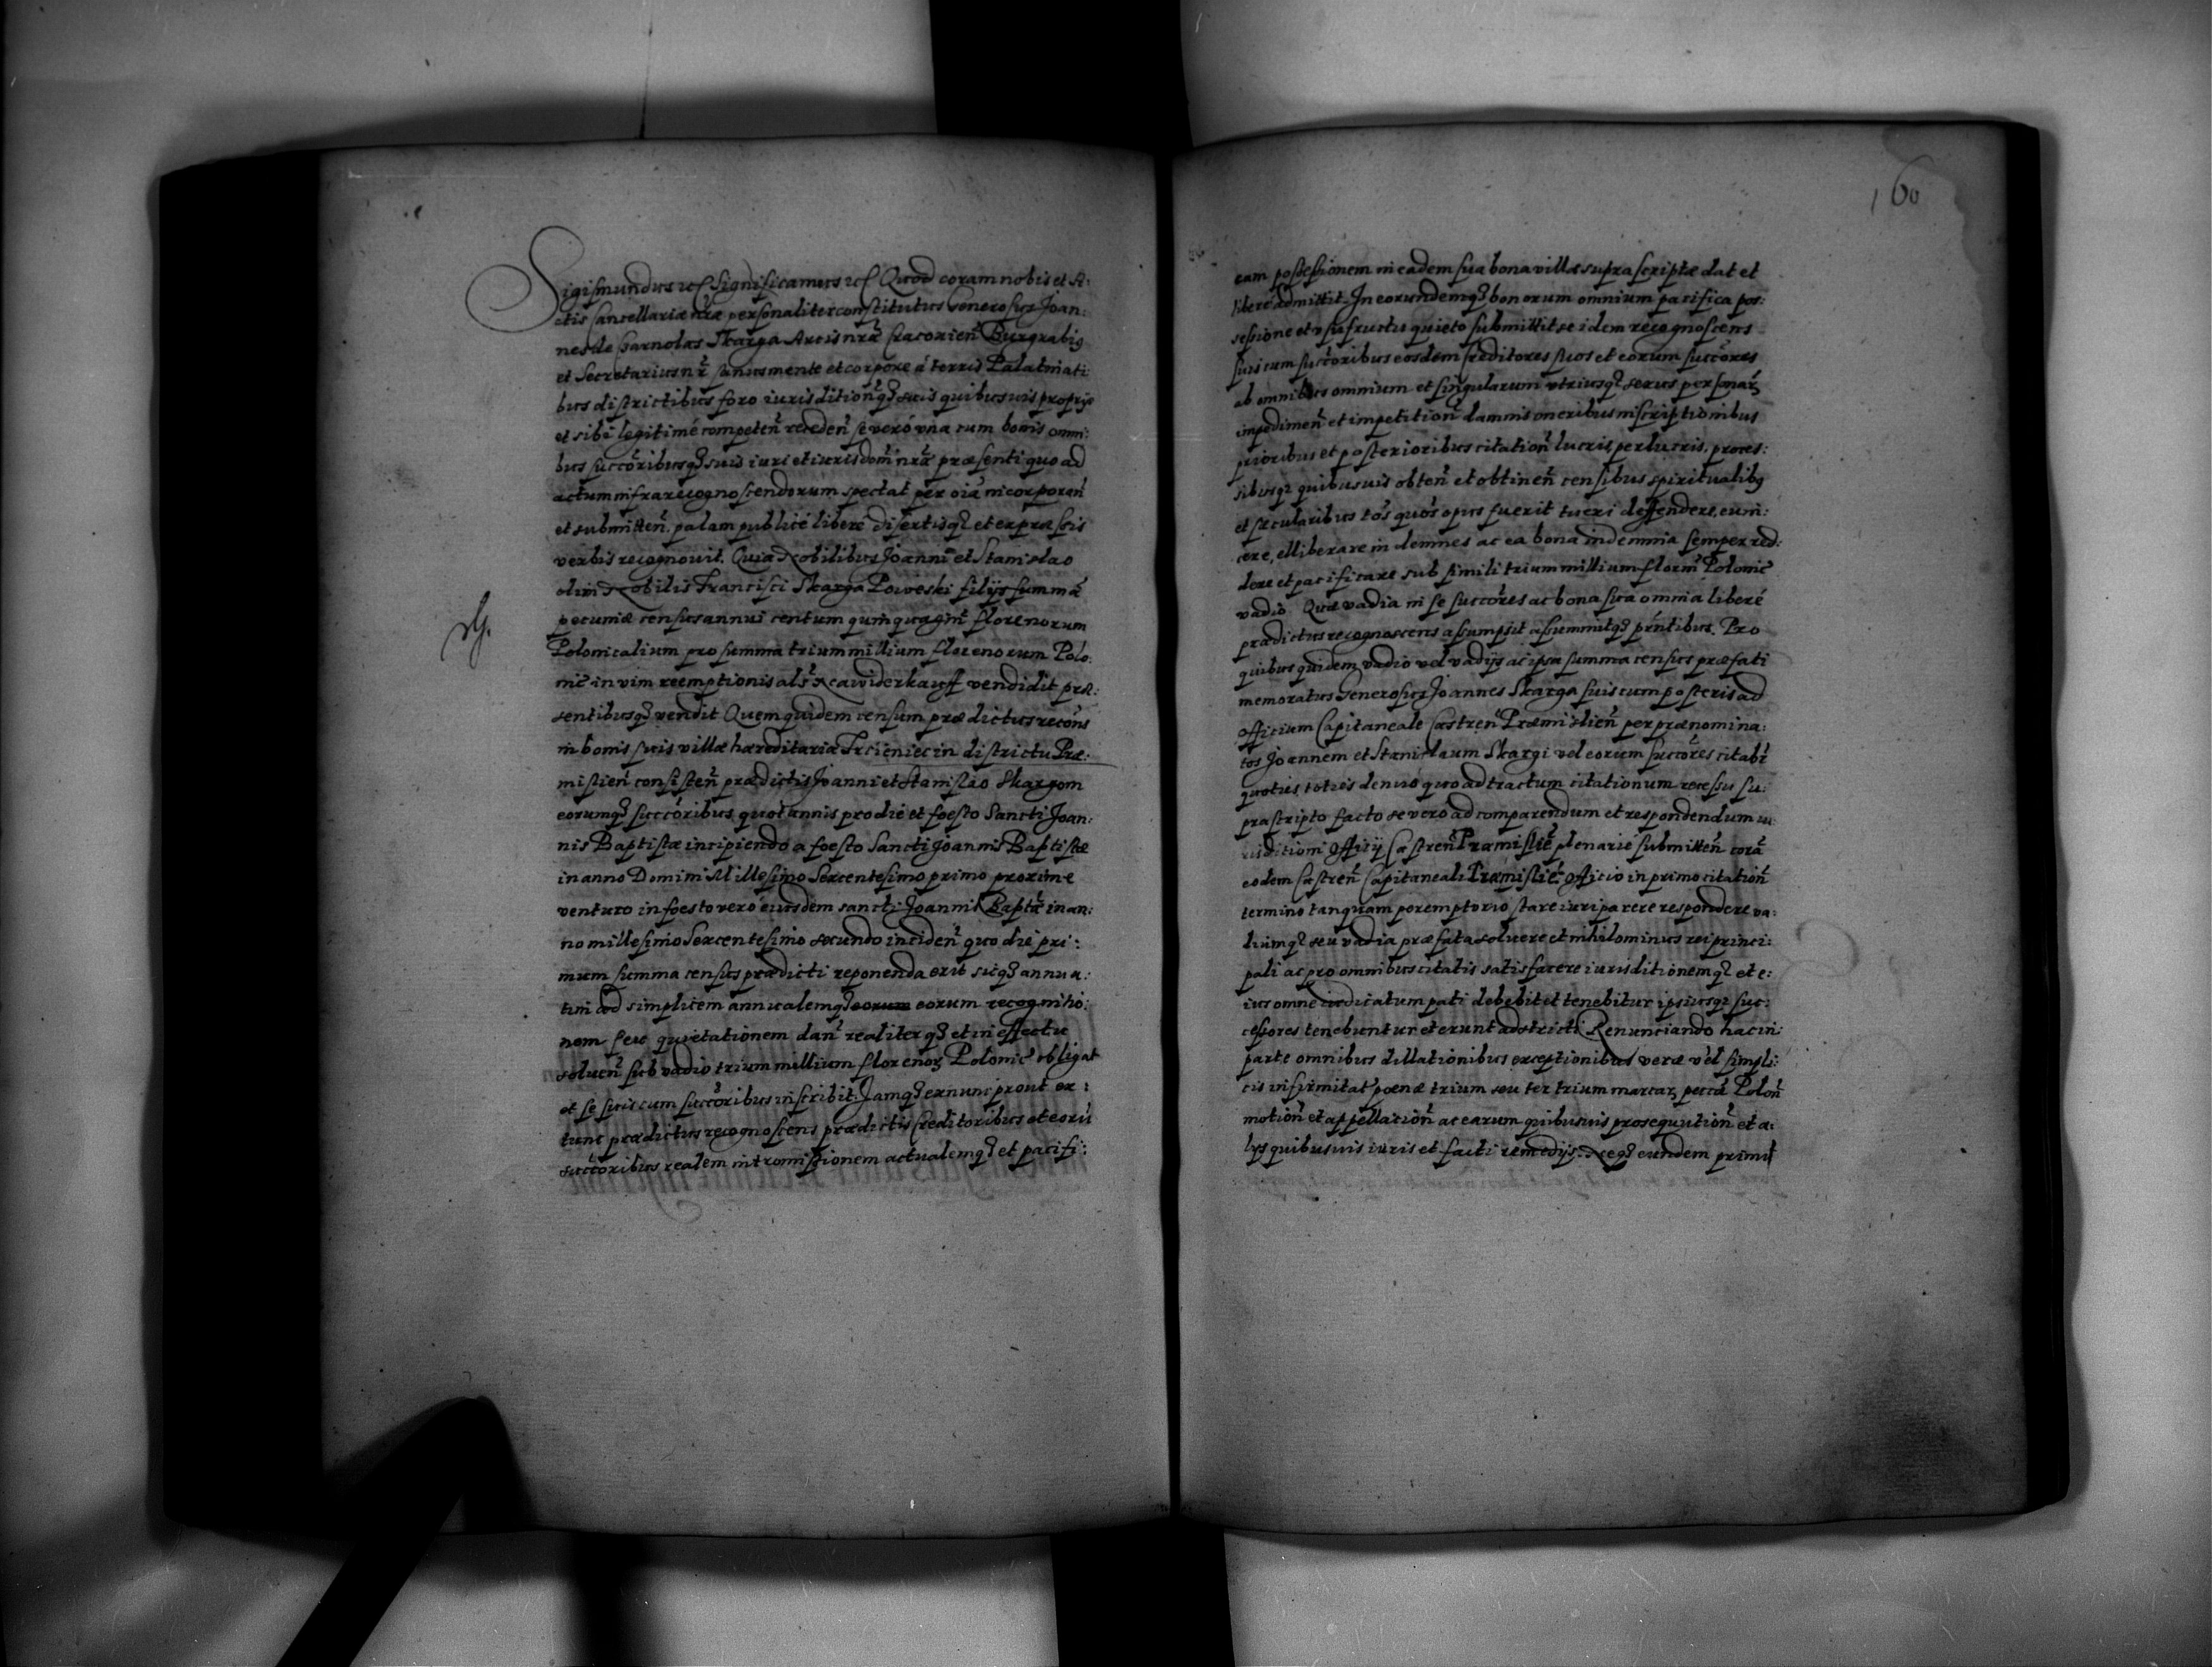 Sigismundus etc. Significamus etc. Quod coram nobis et A:
ctis Cancellariæ nræ personaliter constitutus Generosus Joan:
nes de Garnolas Skarga Arcis nrã Cracorien̄ Burgrabiꝯ
et Secretarius nr̃ sanus mente et corpore á terris Palatinati:
bus districtibus foro iurisdition̄qꝫ suis quibusuis proprijs
et sibi legitimé competen̄ receden̄ se veró vna cum bonis omni:
bus succ̄oribusqꝫ suis iuri et iurisdom̄ nrã præsenti quo ad
actum infra recognoscendorum spectat per oiã incorporan̄
et submitten̄, palam publicé liberé disertisqꝫ et expræssis
verbis recognouit. Quia Nobilibus Joanni et Stanislao
olim Nobilis Francisci Skarga Poweski filijs summã
pecuniæ census annui centum quinquagin̄ florenorum
Polonicalium pro summa trium millium florenorum Polo:
nic̄ in vim reemptionis als̄ Na widerkauff vendidit præ:
sentibusqꝫ vendit Quem quidem censum prædictus recon̄s
in bonis suis villæ hæreditariæ Trcieniec in districtu Præ:
mislien̄ consisten̄ prædictis Joanni et Stanislao Skargom
eorumqꝫ succ̄oribus quotannis pro die et foesto Sancti Joan:
nis Baptistæ incipiendo a foesto Sancti Joannis Baptistæ
in anno Domini Millesimo Sexcentesimo primo proxime
venturo in foesto veró eiusdem sancti Joannis Baptæ̃ in an:
no millesimo Sexcentesimo secundo inciden̄ quo die pri:
mum summa census prædicti reponenda erit sicqꝫ annua:
tim ad simplicem annualemqꝫ eorum eorum recognitio:
nem seu quietationem dan̄ realiterqꝫ et in effectu
soluen̄ sub vadio trium millium florenoꝝ Polonic̄ obligat
et se suis cum succ̄oribus inscribit. Jamqꝫ ex nunc prout ex:
tunc prædictus recognoscens prædictis Creditoribus et eorũ
succ̄oribus realem intromissionem actualemqꝫ et pacifi:
160
cam possessionem in eadem sua bona villæ supra scriptæ dat et
liberé admittit. In eorundemqꝫ bonorum omnium pacifica pos:
sessione et vsufructu quieto submittit se idem recognoscens
suis cum succ̄oribus eosdem Creditores suos et eorum succ̄ores
ab omnibus omnium et singularum vtriusqꝫ sexus personaꝝ
impedimen̄ et impetition̄ damnis oneribus inscriptionibus
prioribus et posterioribus citation̄ lucris, perlucris, proces:
sibusqꝫ quibusuis obten̄ et obtinen̄ censibus spiritualibꝯ
et sæcularibus tos̄ quos̄ opus fuerit tueri deffendere, euin:
cere, elliberare indemnes ac ea bona indemnia semper red:
dere et pacificare sub simili trium millium floren̄ Polonic̄
vadio Quæ vadia in se succ̄ores ac bona sua omnia liberé
prædictus recognoscens assumpsit assumitqꝫ prn̄tibus. Pro
quibus quidem vadio vel vadijs ac ipsa summa census præfati
memoratus Generosus Joannes Skarga suis cum posteris ad
Officium Capitaneale Castren̄ Præmislien̄ per prænomina:
tos Joannem et Stanislaum Skargi vel eorum succ̄ores citabr̄
quoties toties denuo quo ad tractum citationum recessu su:
prascripto facto se vero ad comparendum et respondendum iu:
risditioni Officij Castren̄ Præmislie̅ plenarié submitten̄ corã
eodem Castren̄ Capitaneali Præmislie̅ Officio in primo citation̄
termino tanquam peremptorio stare iuri parere respondere va:
diumqꝫ seu vadia præfata soluere et nihilominus rei princi:
pali ac pro omnibus citatis satisfacere iurisditionemqꝫ et e:
ius omne iudicatum pati debebit et tenebitur ipsiusqꝫ suc:
cessores tenebuntur et erunt adstricti Renunciando hac in
parte omnibus dillationibus exceptionibus veræ vel simpli:
cis infirmitat̄ poenæ trium seu ter trium marcaꝝ pecc̄ã Polon̄
motion̄ et appellacion̄ ac earum quibusuis prosequution̄ et a:
lijs quibusuis iuris et facti remedijs. Neqꝫ eundem primũ